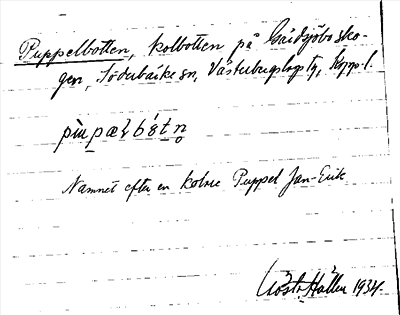 Puppelbotten, kolbotten på Gärdsjöbosko-
gen, Söderbärke sn, Västerbergslags tg, Kopp. l.
pùpæḷbótn̥
Namnet efter en kolare Puppel Jan-Erik
Gösta Hallin 1934.